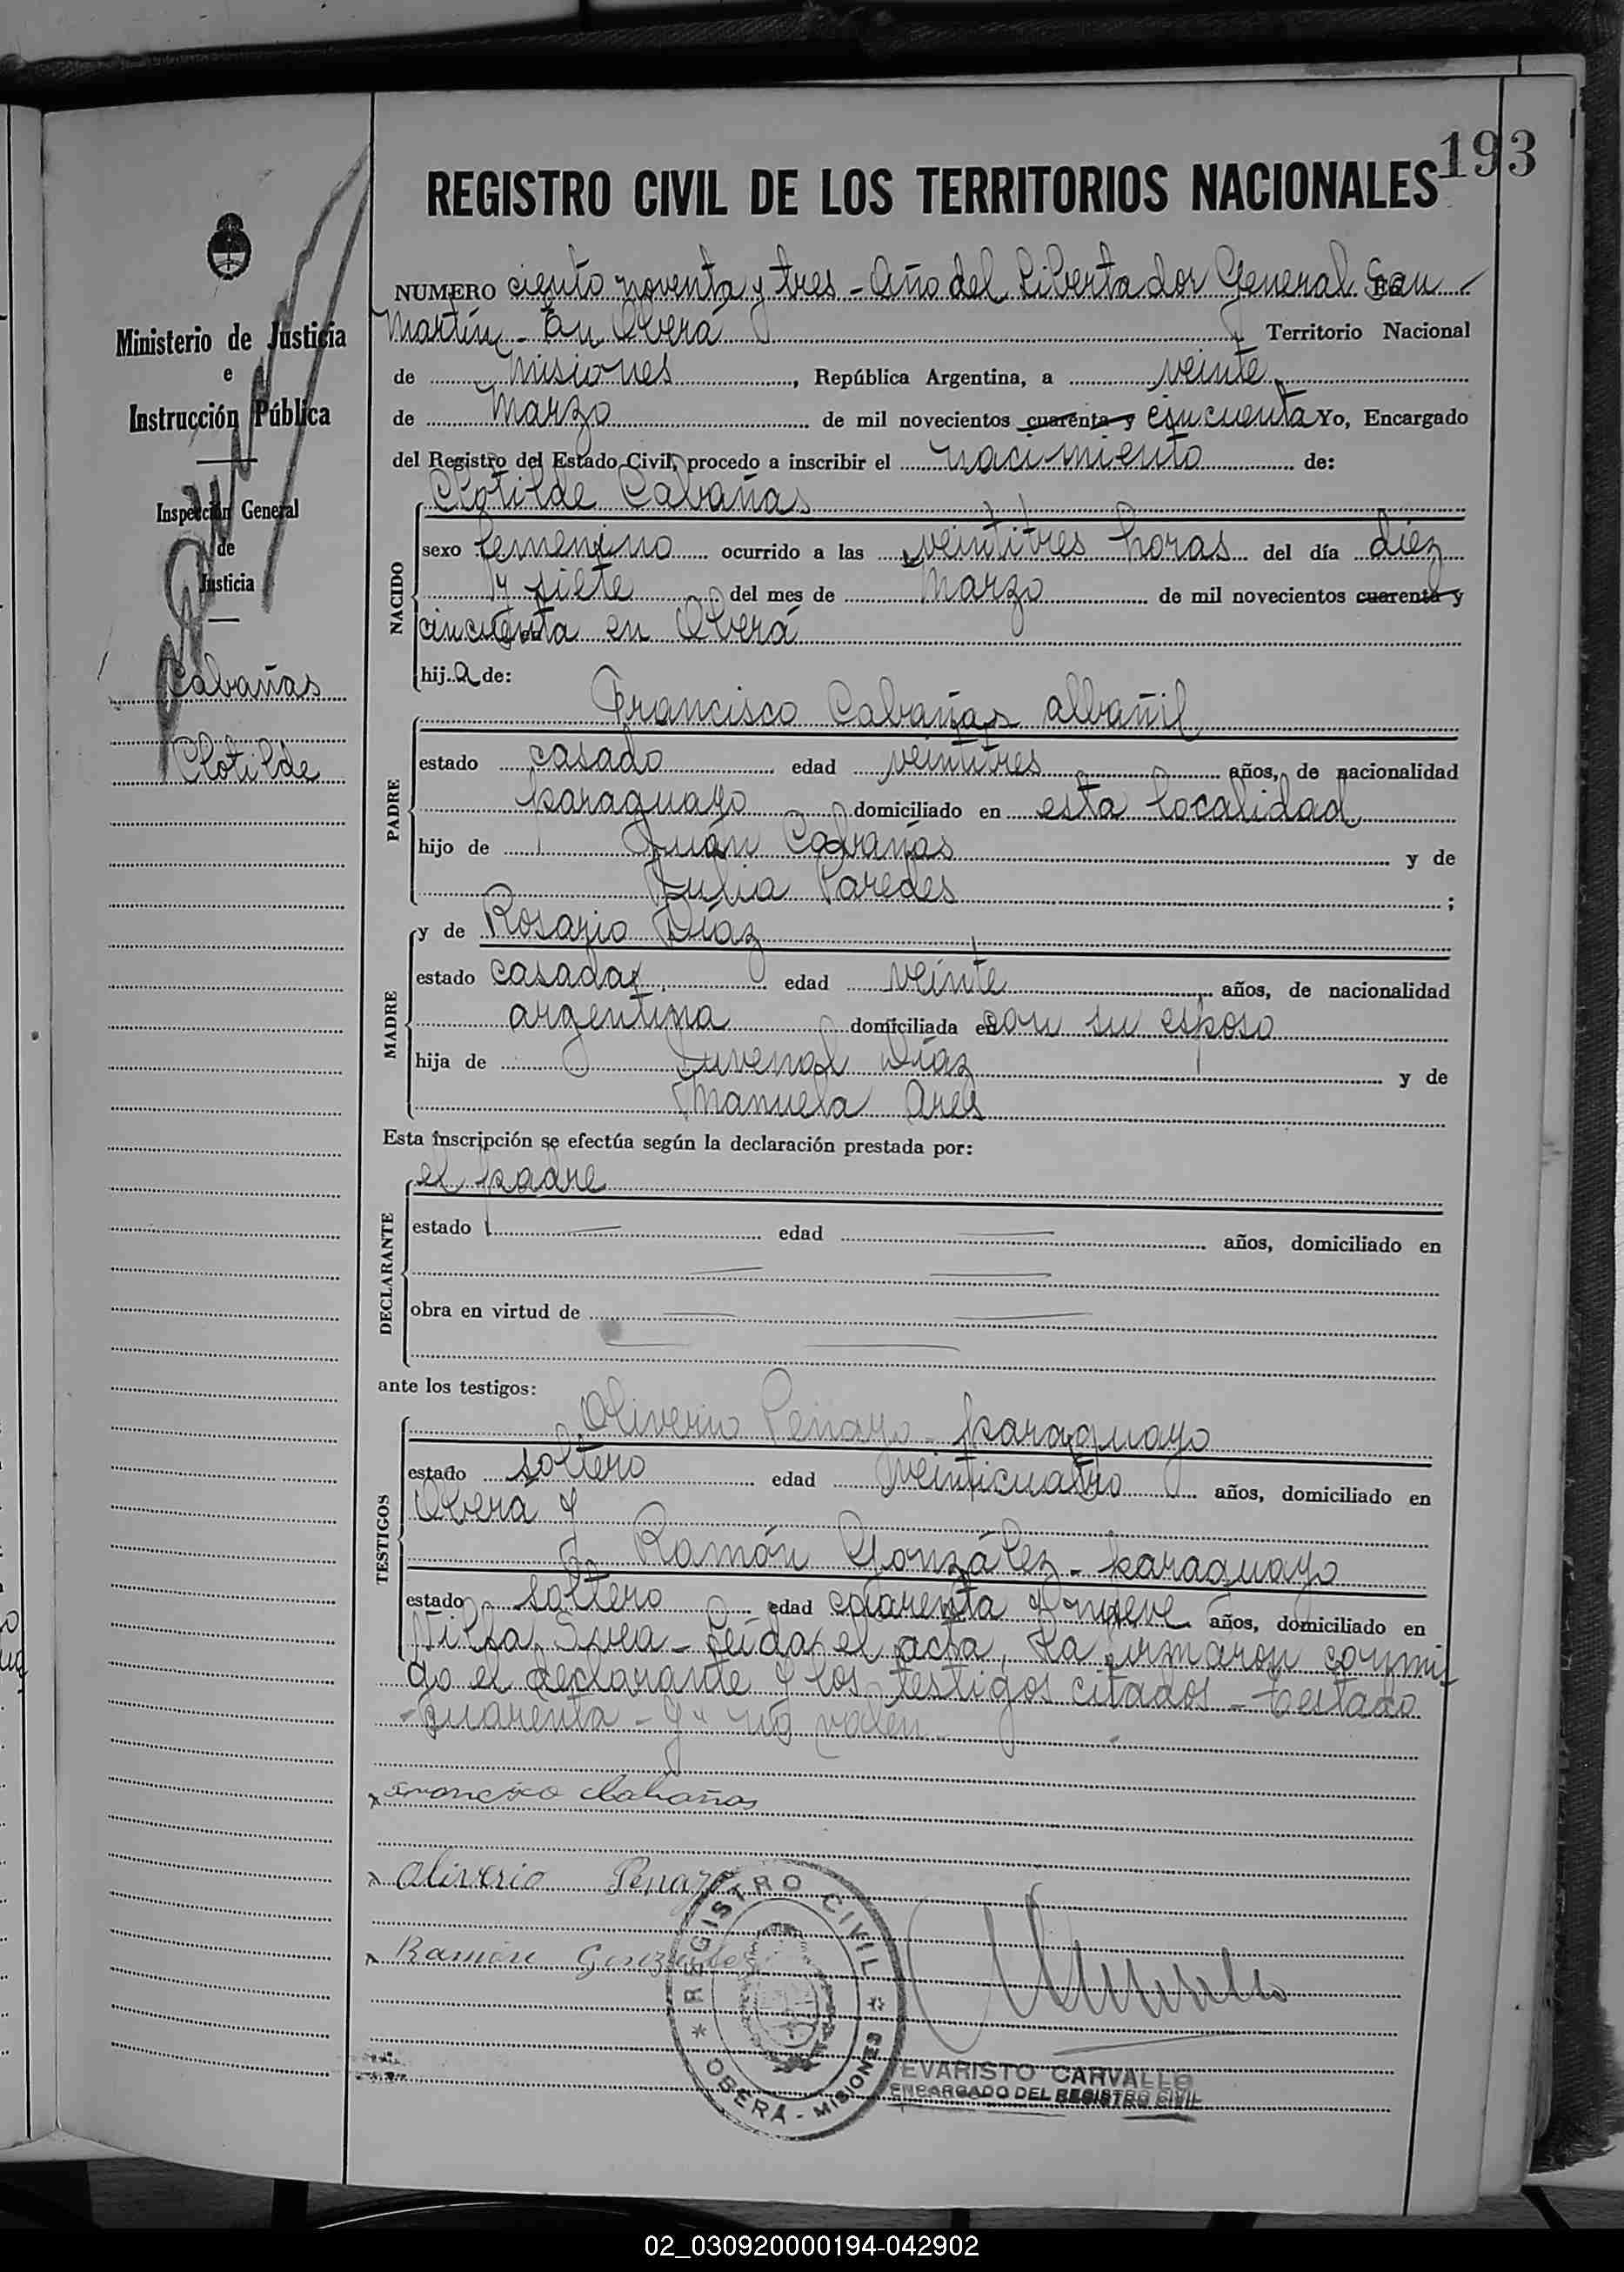 193
REGISTRO CIVIL DE LOS TERRITORIOS NACIONALES
Ministerio de Justicia
e
Instrucción Pública
Inspección General
de
Justicia
Cabañas
Clotilde
NUMERO ciento noventa y tres - Año del Libertador General San
Martín - En Oberá Territorio Nacional
de Misiones, República Argentina, a veinte
de Marzo de mil novecientos cuarenta y cincuenta Yo, Encargado
del Registro del Estado Civil, procedo a inscribir el nacimiento de:
Clotilde Cabañas
NACIDO
sexo femenino ocurrido a las veintitres horas del día diez
y siete del mes de Marzo de mil novecientos cuarenta y
cincuenta en Oberá
hija de:
Francisco Cabañas albañil
PADRE
estado casado edad veintitres años, de nacionalidad
paraguayo domiciliado en esta localidad
hijo de Juán Cabañas y de
Julia Paredes ;
y de Rosario Díaz
MADRE
estado casada edad veinte años, de nacionalidad
argentina domiciliada en con su esposo
hija de Juvenal Díaz y de
Manuela Ares
Esta inscripción se efectúa según la declaración prestada por:
el padre
DECLARANTE
estado edad años, domiciliado en
obra en virtud de
ante los testigos:
Oliverio Penayo - paraguayo
TESTIGOS
estado soltero edad veinticuatro años, domiciliado en
Oberá y
Ramón González - paraguayo
estado soltero edad cuarenta y nueve años, domiciliado en
Villa Svea - Leída el acta, la firmaron conmi
go el declarante y los testigos citados - Testado
- cuarenta - y - no valen -
x Francisco Cabañas
x Oliverio Penayo
x Ramón Gonzalez
REGISTRO CIVIL
OBERÁ - MISIONES
EVARISTO CARVALLO
ENCARGADO DEL REGISTRO CIVIL
02_030920000194-042902